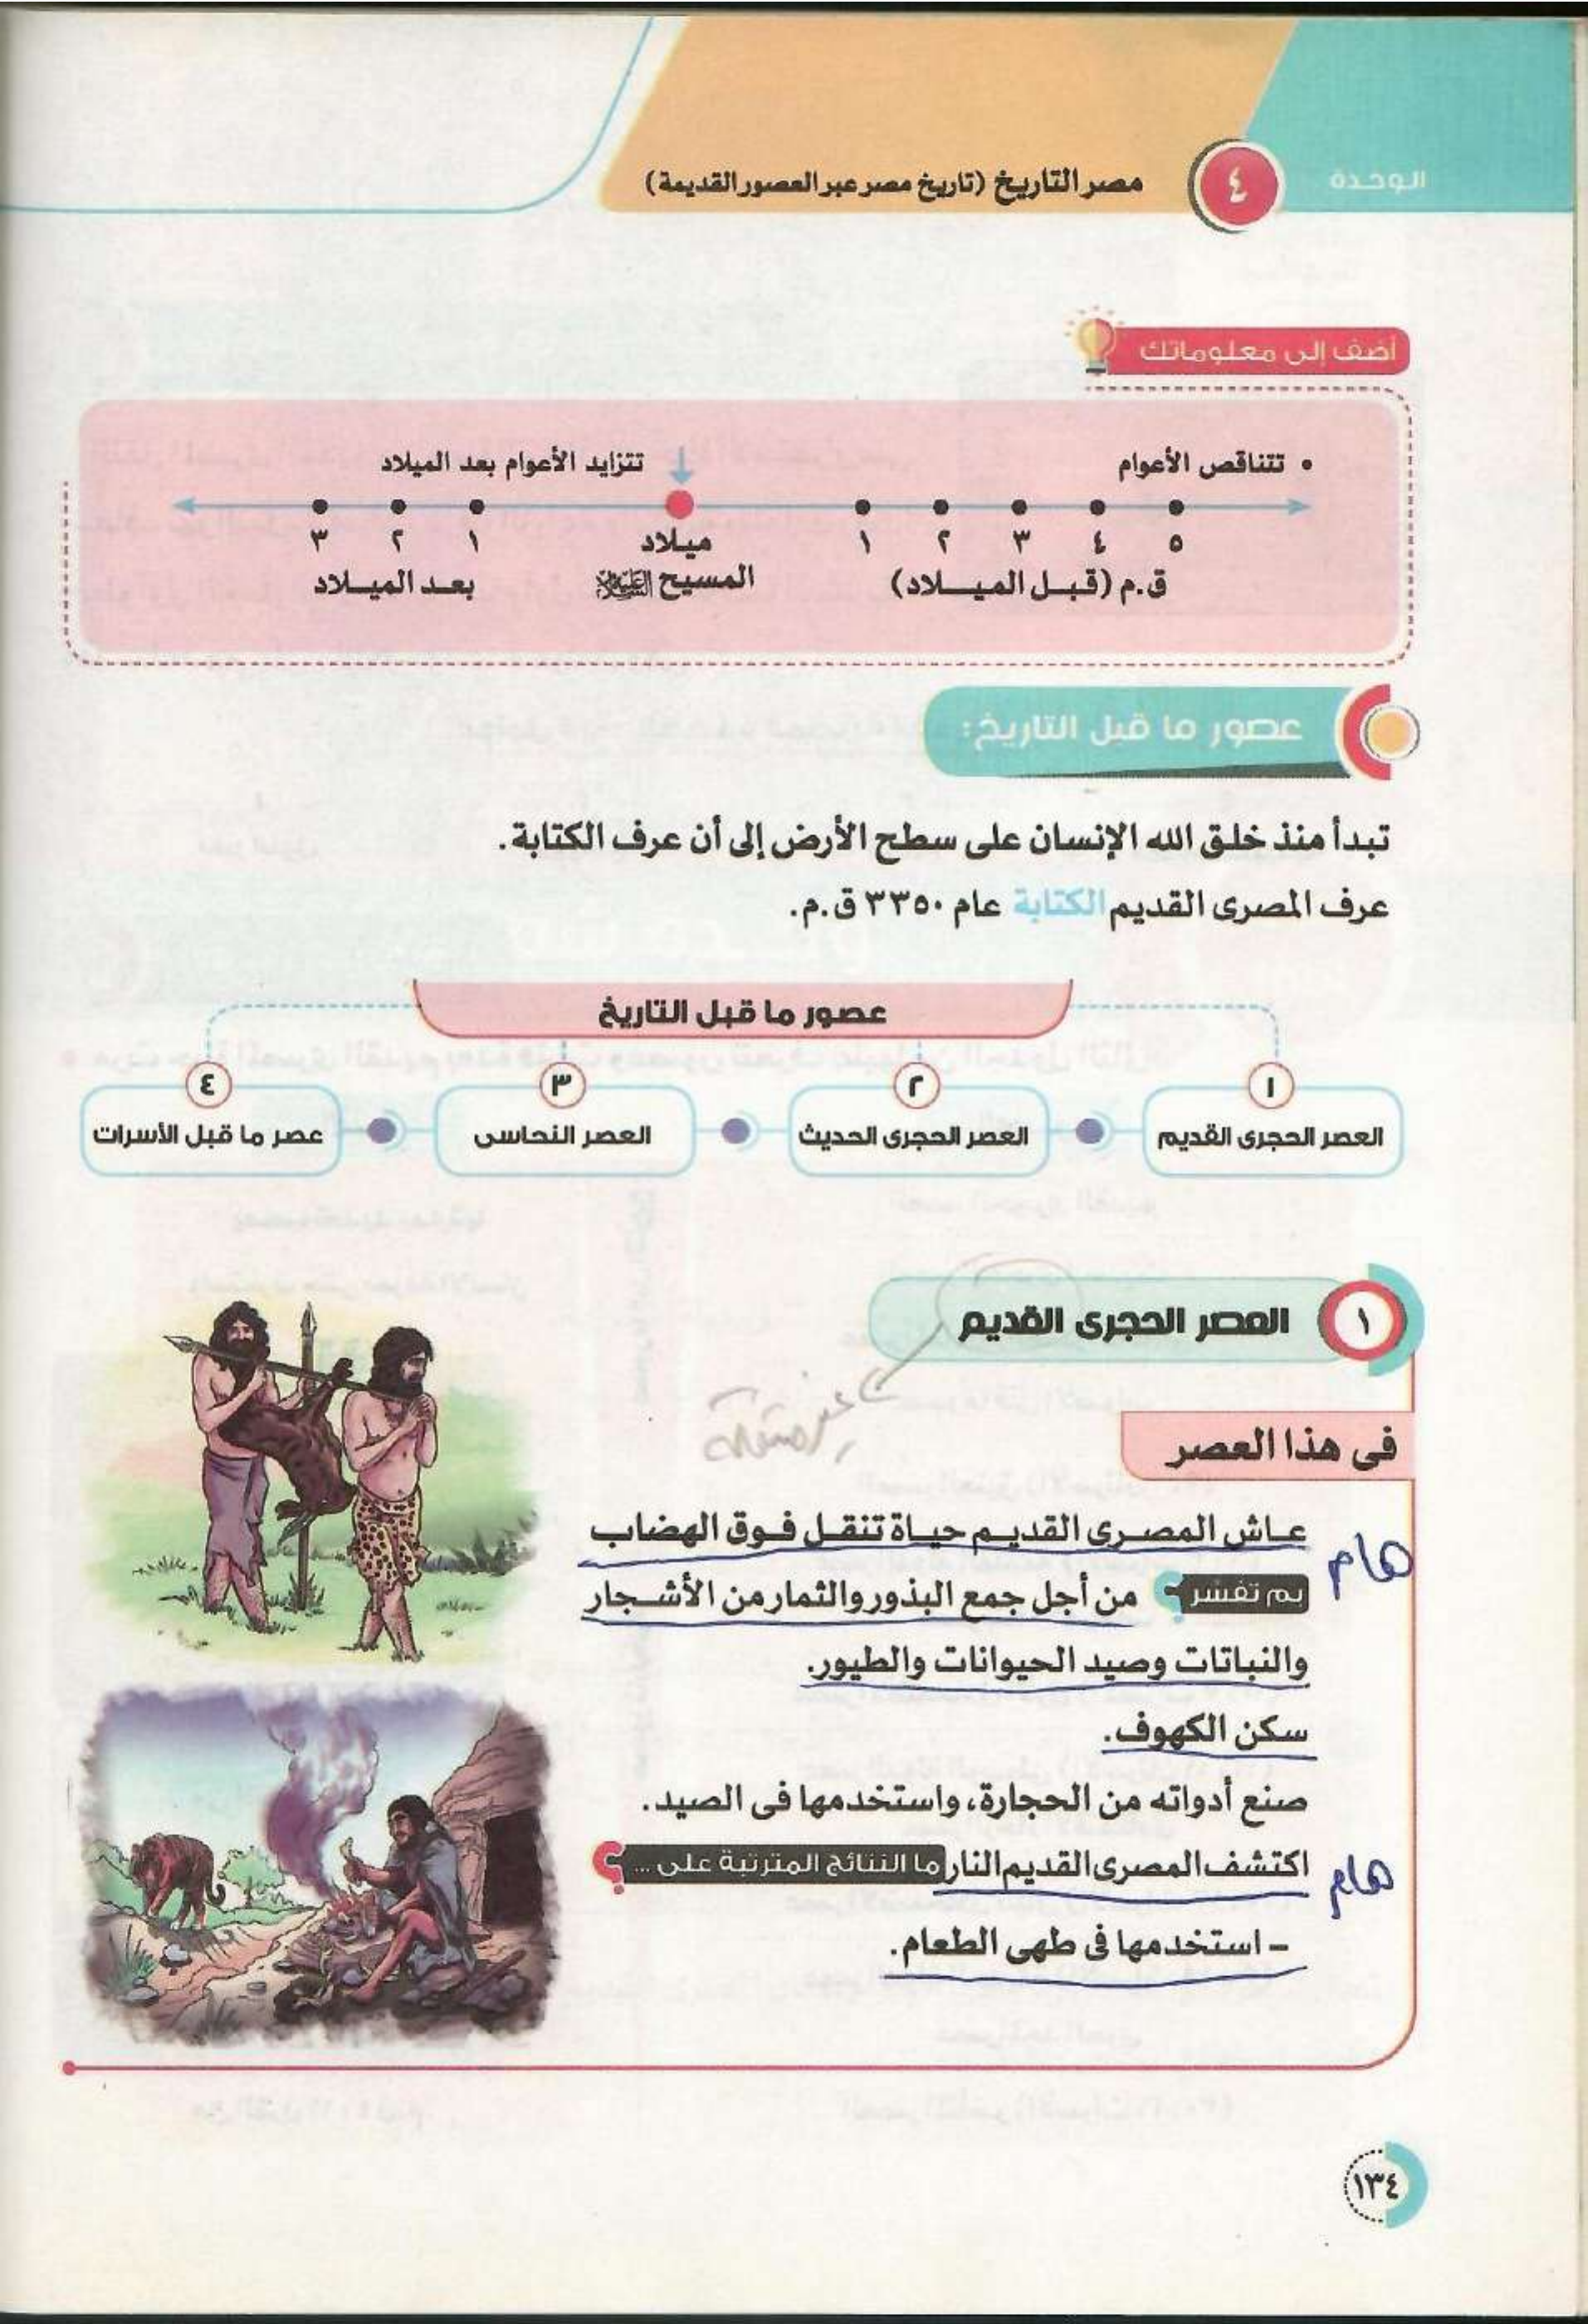 الوحدة ٤ مصر التاريخ (تاريخ مصر عبر العصور القديمة)
أضف إلى معلوماتك
• تتناقص الأعوام تتزايد الأعوام بعد الميلاد
٥ ٤ ٣ ٢ ١ ميلاد ١ ٢ ٣
ق.م (قبل الميلاد) المسيح عليه السلام بعد الميلاد
عصور ما قبل التاريخ:
تبدأ منذ خلق الله الإنسان على سطح الأرض إلى أن عرف الكتابة.
عرف المصرى القديم الكتابة عام ٣٣٥٠ ق.م.
عصور ما قبل التاريخ
١ ٢ ٣ ٤
العصر الحجرى القديم العصر الحجرى الحديث العصر النحاسى عصر ما قبل الأسرات
١ العصر الحجرى القديم
فى هذا العصر
عاش المصرى القديم حياة تنقل فوق الهضاب
هام
بم تفسر ؟ من أجل جمع البذور والثمار من الأشجار
والنباتات وصيد الحيوانات والطيور.
سكن الكهوف.
صنع أدواته من الحجارة، واستخدمها فى الصيد.
اكتشف المصرى القديم النار ما النتائج المترتبة على ... ؟
هام
- استخدمها فى طهى الطعام.
١٣٤